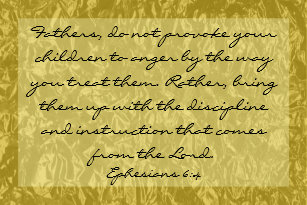 Fathers, do not provoke your
children to anger by the way
you treat them. Rather, bring
them up with the discipline
and instruction that comes
from the Lord.
Ephesians 6:4